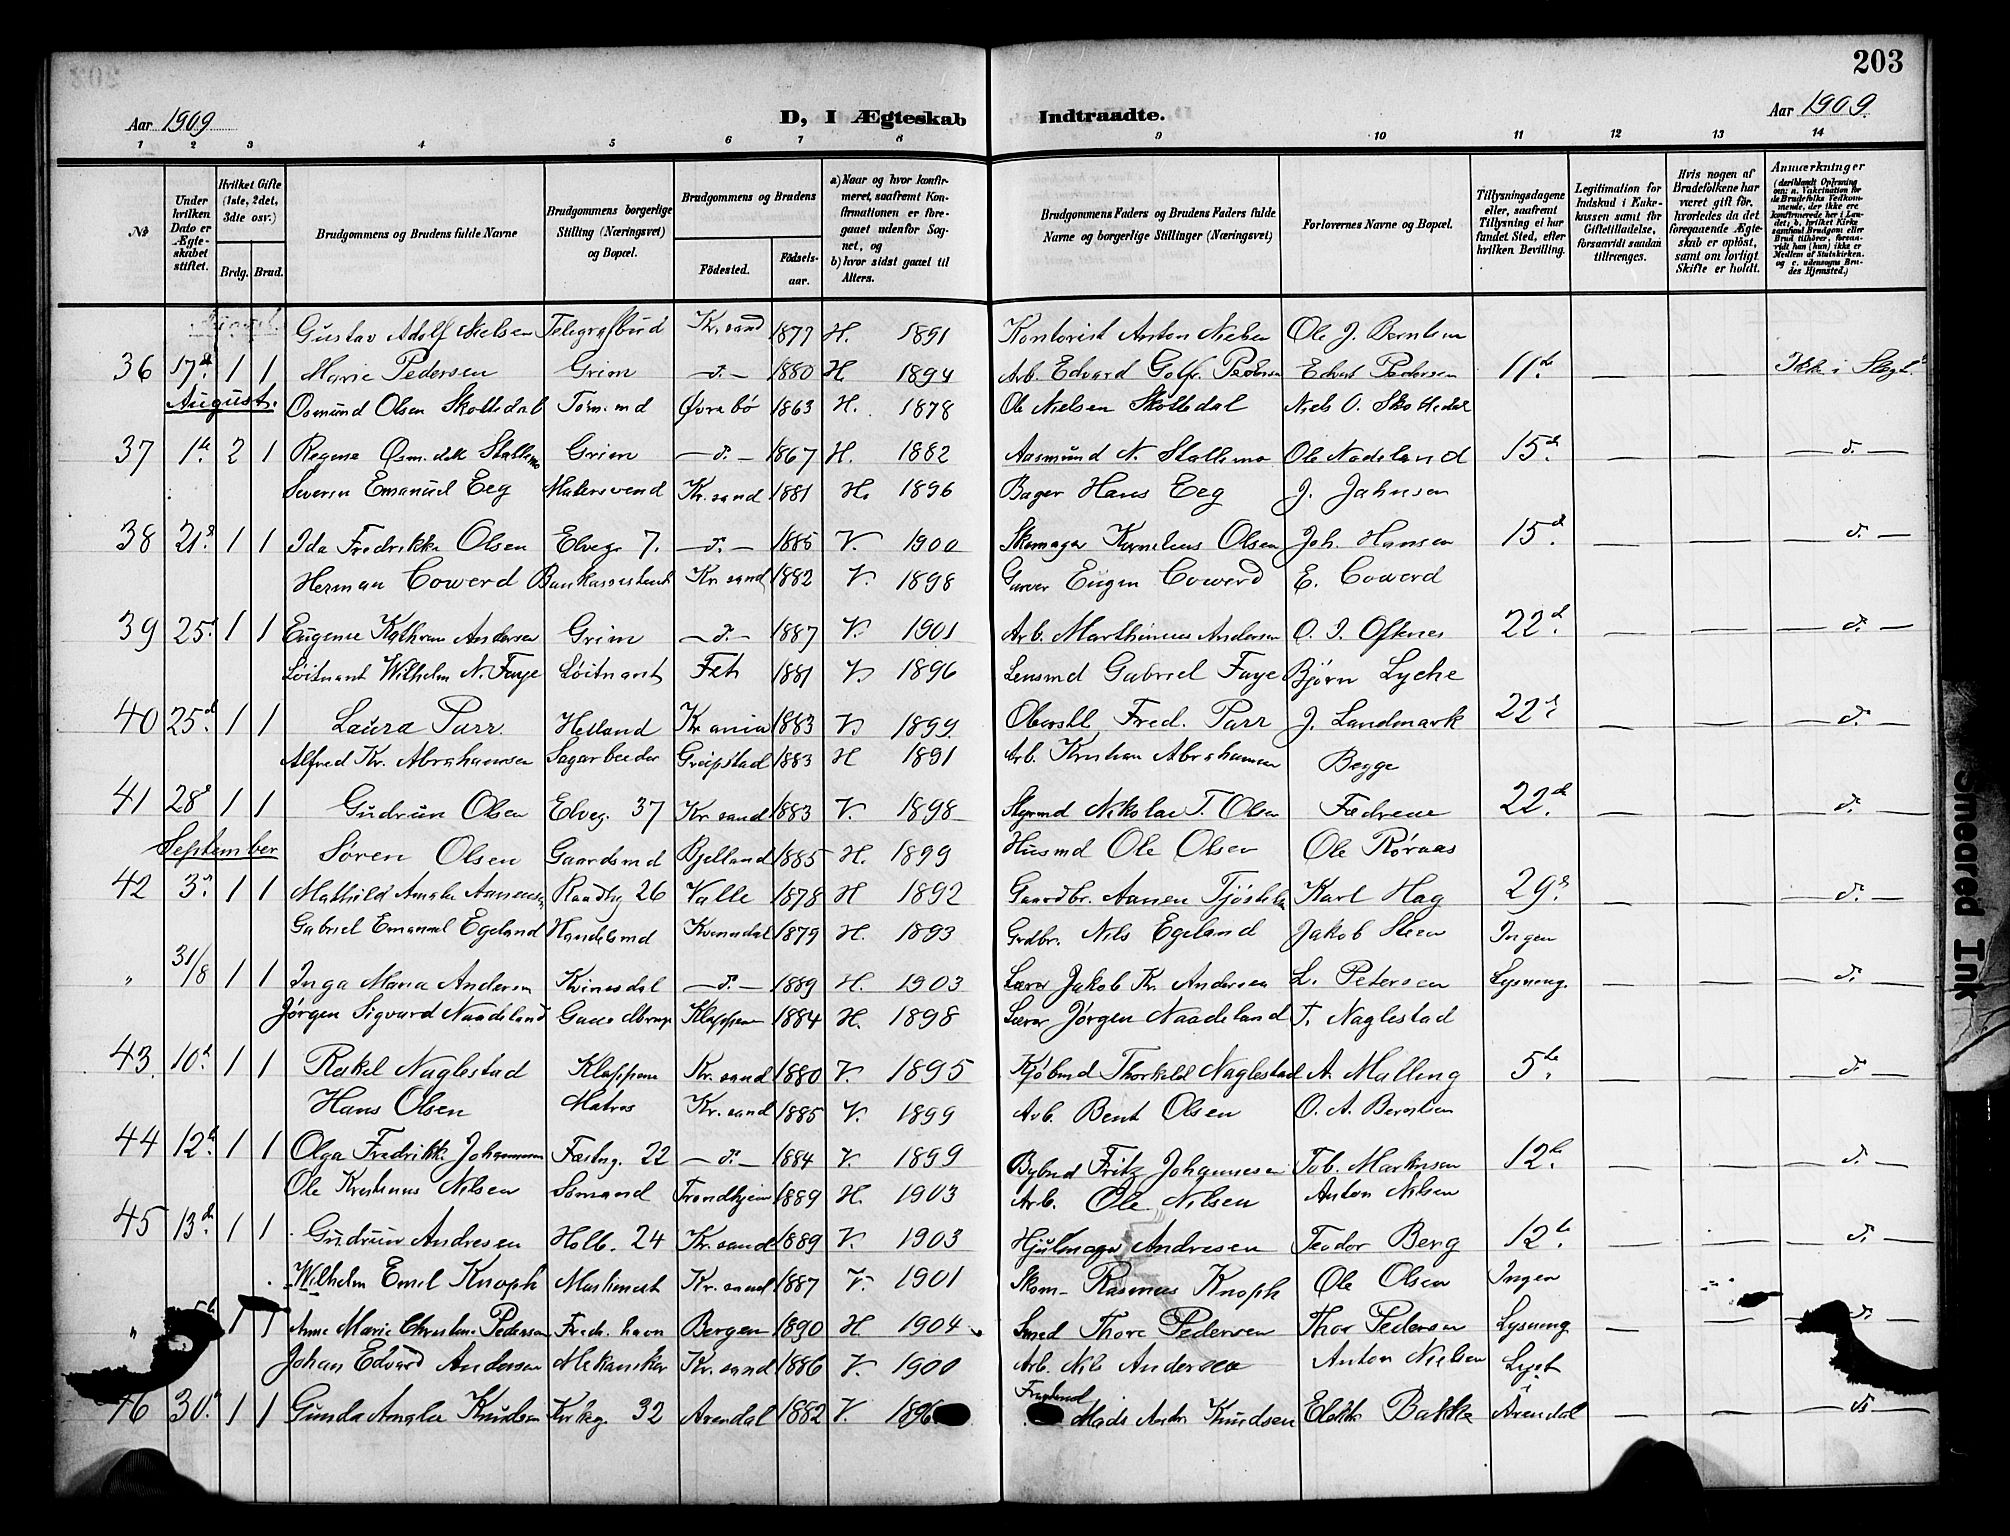 203
Aar 1909
D, I Ægteskab Indtraadte.
Aar 1909.
1 2 3 4 5 6 7 8 9 10 11 12 13 14
№
Under hvilken Dato er Ægteskabet stiftet.
Hvilket Gifte (1ste, 2det, 3die osv.)
Brdg. Brud.
Brudgommens og Brudens fulde Navne
Brudgommens borgerlige Stilling (Næringsvei) og Bopæl.
Brudgommens og Brudens
Fødested. Fødselsaar.
a) Naar og hvor konfirmeret, saafremt Konfirmationen er foregaaet udenfor Sognet, og
b) hvor sidst gaaet til Alters.
Brudgommens Faders og Brudens Faders fulde Navne og borgerlige Stillinger (Næringsvei)
Forlovernes Navne og Bopæl.
Tillysningsdagene eller, saafremt Tillysning ei har fundet Sted, efter hvilken Bevilling.
Legitimation for Indskud i Enkekassen samt for Giftetilladelse, forsaavidt saadan tiltrænges.
Hvis nogen af Brudefolkene har været gift før, hvorledes da det foregaaende Ægteskab er opløst, samt om lovligt Skifte er holdt.
Anmærkninger
(deriblandt Oplysning om: a. Vakcination for de Brudefolks Vedkommende, der ikke ere konfirmerede her i Landet; b. hvilket Kirkesamfund Brudgom eller Brud tilhører, forsaavidt han (hun) ikke er Medlem af Statskirken. og c. udensogns Brudes Hjemsted.)
Gustav Adolf Nielsen Telegrafbud Kr.sand 1877 H. 1891 Kontorist Anton Nielsen Ole J. Berntsen
36 17d. 1 1 Marie Pedersen Grim — d. — 1880 H. 1894 Arb. Edvard Golfr. Pedersen Edvard Pedersen 11te — — Ikke i Slegt.
August.
Osmund Olsen Skottedal Tømmd Øvrebø 1863 H. 1878 Ole Nielsen Skottedal Niels O. Skottedal
37 1te. 2 1 Regine Osm.datt Stallemo Grim — d. — 1867 H. 1882 Aasmund N. Stallemo Ole Nodeland 15d. — — — d. —
Severin Emanuel Eeg Malersvend Kr.sand 1881 H. 1896 Bager Hans Eeg J. Jahnsen
38 21d. 1 1 Ida Fredrikke Olsen Elveg. 7. — d. — 1885 V. 1900 Skomager Kornelius Olsen Joh. Hansen 15d. — — — d. —
Herman Cowerd Bankassistent Kr.sand 1882 V. 1898 Garver Eugen Cowerd E. Cowerd
39 25d. 1 1 Eugenie Kathrine Andersen Grim — d. — 1887 V. 1901 Arb. Marthinius Andersen O. I. Oftenes 22d. — — — d. —
Løitnant Wilhelm N. Faye Løitnant Fet 1881 V. 1896 Lensmd Gabriel Faye Bjørn Lyche
40 25d. 1 1 Laura Parr Helland Kr.ania 1883 V. 1899 Oberstl. Fred. Parr J. Landmark 22d. — — — d. —
Alfred Kr. Abrahamsen Sagarbeider Greipstad 1883 H 1891 Arb. Kristian Abrahamsen Begge
41 28d 1 1 Gudrun Olsen Elveg. 37 Kr.sand 1883 V. 1898 Styrmd Nikolai T. Olsen Fædrene 22d. — — — d. —
September
Søren Olsen Gaardsmd Bjelland 1885 H. 1899 Husmd Ole Olsen Ole Røraas
42 3d. 1 1 Mathild Amalie Aanensen Raadhg 26 Valle 1878 H 1892 Gaardbr. Aanen Karl Hag 29d. — — — d. —
Gabriel Emanuel Egeland Handelsmd 1879 H. 1893 Grdbr. Nils Egeland Jakob Steen Ingen
„ 31/8 1 1 Inga Maria Andersen Kvinesdal — d. — 1889 H. 1903 Lærer Jakob Kr. Andersen L. Petersen Lysning. — — — d. —
Jørgen Sigvard Naadeland Kleppen 1884 H. 1898 Lærer Jørgen Naadeland T. Naglestad
43. 10d. 1 1 Naglestad Kleppene Kr.sand 1880 V. 1895 Kjøbmd Thorkild Naglestad A. Malling 5te. — — — d. —
Hans Olsen Matros Kr.sand 1885 V. 1899 Arb. Bent Olsen O. A. Berntsen
44 12te. 1 1 Olga Fredrikke Johannesen Fæstng. 22 — d. — 1884 V. 1899 Bybud Fritz Johannesen Tob. Markusen 12te. — — — d. —
Ole Kristinus Nilsen Sømand Trondhjem 1889 H. 1903 Arb. Ole Nilsen Anton Nilsen
45 13de. 1 1 Gudrun Andresen Holb. 24 Kr.sand 1889 V. 1903 Hjulmager Andresen Teodor Berg 12te. — — — d. —
Wilhelm Emil Knoph Maskinist Kr.sand 1887 V. 1901 Skom. Rasmus Knoph Ole Olsen Ingen
„ 1 1 Anne Marie Christine Pedersen Fredr.havn Bergen 1890 H 1904 Smed Thore Pedersen Thor Pedersen Lysning — — — d. —
Johan Edvard Andersen Mekaniker Kr.sand 1886 V. 1900 Arb. Nils Andersen Anton Nielsen Lyst
46 30te. 1 1 Gunda Amalie Knudsen Kirkeg. 32 Arendal 1882 V. 1896 Mads Anton Knudsen Elektr. Bakke i Arendal — — — d. —
Smeared Ink